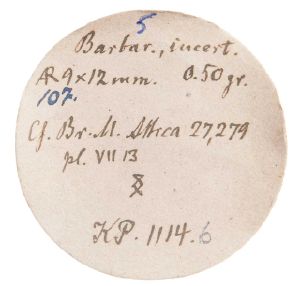 5
Barbar., incert.
AR 9 x 12 mm. 0.50 gr.
107.
Cf. Br. M. Attica 27,279
pl. VII 13
KP. 1114.6